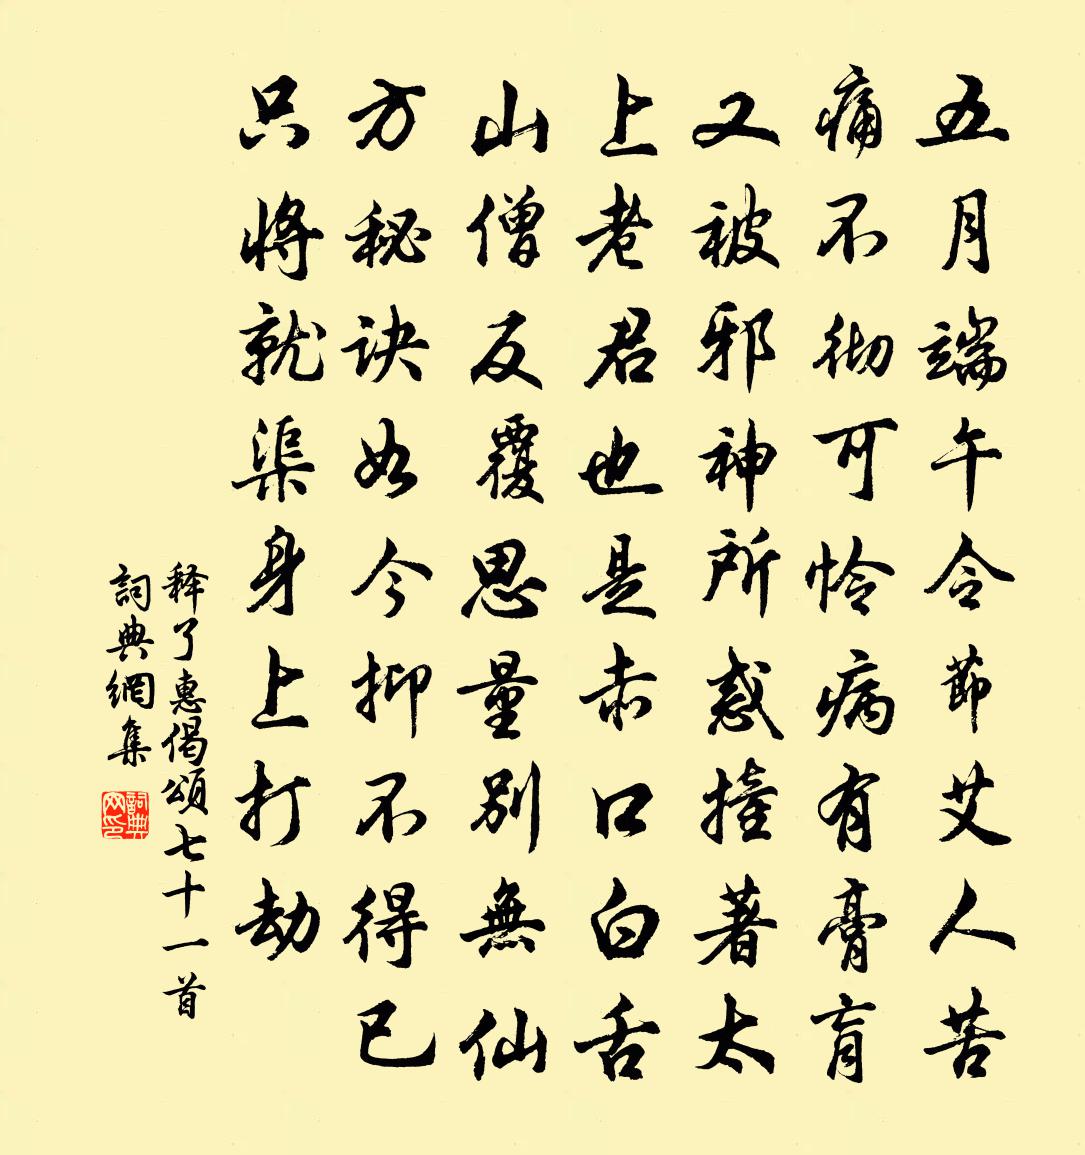 五月端午令節艾人苦
痛不彻可怜病有膏肓
又被邪神所惑撞著太
上老君也是赤口白舌
山僧反覆思量別無仙
方秘诀如今抑不得已
只將就渠身上打劫
释了惠偈頌七十一首
詞典網集
詞典网印